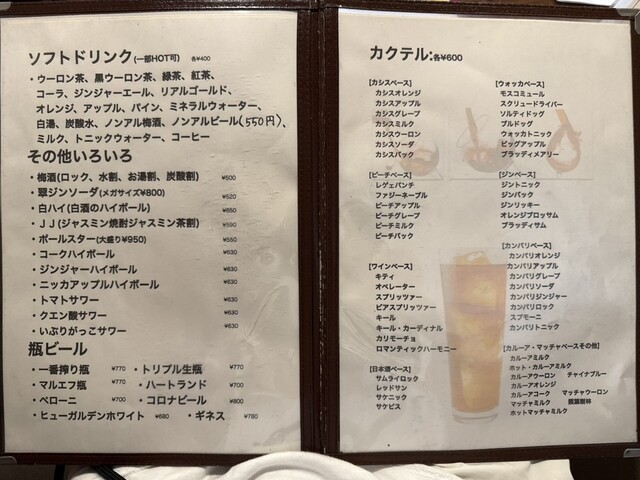 ソフトドリンク(一部HOT可) 各¥400
・ウーロン茶、黒ウーロン茶、緑茶、紅茶、
コーラ、ジンジャーエール、リアルゴールド、
オレンジ、アップル、パイン、ミネラルウォーター、
白湯、炭酸水、ノンアル梅酒、ノンアルビール(550円)、
ミルク、トニックウォーター、コーヒー
その他いろいろ
・梅酒(ロック、水割、お湯割、炭酸割) ¥500
・翠ジンソーダ(メガサイズ¥800) ¥520
・白ハイ(白酒のハイボール) ¥650
・JJ(ジャスミン焼酎ジャスミン茶割) ¥590
・ボールスター(大盛り¥950) ¥550
・コークハイボール ¥630
・ジンジャーハイボール ¥630
・ニッカアップルハイボール ¥630
・トマトサワー ¥630
・クエン酸サワー ¥630
・いぶりがっこサワー ¥630
瓶ビール
・一番搾り瓶 ¥770 ・トリプル生瓶 ¥770
・マルエフ瓶 ¥770 ・ハートランド ¥700
・ペローニ ¥700 ・コロナビール ¥800
・ヒューガルデンホワイト ¥680 ・ギネス ¥780
カクテル:各¥600
[カシスベース]
カシスオレンジ
カシスアップル
カシスグレープ
カシスミルク
カシスウーロン
カシスソーダ
カシスバック
[ピーチベース]
レゲエパンチ
ファジーネーブル
ピーチアップル
ピーチグレープ
ピーチミルク
ピーチバック
[ワインベース]
キティ
オペレーター
スプリッツァー
ビアスプリッツァー
キール
キール・カーディナル
カリモーチョ
ロマンティックハーモニー
[日本酒ベース]
サムライロック
レッドサン
サケニック
サケピス
[ウォッカベース]
モスコミュール
スクリュードライバー
ソルティドッグ
ブルドッグ
ウォッカトニック
ビッグアップル
ブラッディメアリー
[ジンベース]
ジントニック
ジンバック
ジンリッキー
オレンジブロッサム
ブラッディサム
[カンパリベース]
カンパリオレンジ
カンパリアップル
カンパリグレープ
カンパリソーダ
カンパリジンジャー
カンパリロック
スプモーニ
カンパリトニック
[カルーア・マッチャベースその他]
カルーアミルク
ホット・カルーアミルク
カルーアウーロン チャイナブルー
カルーアオレンジ
カルーアコーク マッチャウーロン
マッチャミルク 照葉樹林
ホットマッチャミルク